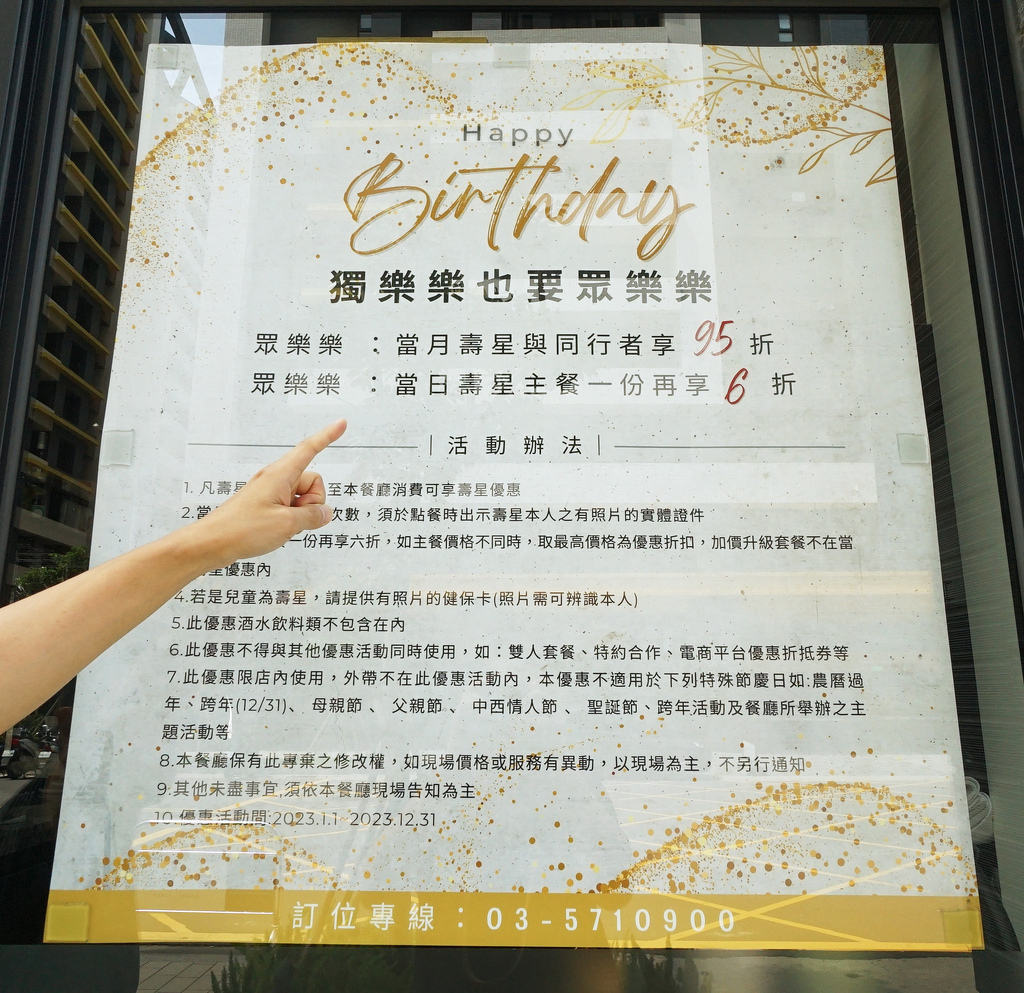 Happy
Birthday
獨樂樂也要眾樂樂
眾樂樂 ：當月壽星與同行者享 95 折
眾樂樂 ：當日壽星主餐一份再享 6 折
|活動辦法|
1. 凡壽 至本餐廳消費可享壽星優惠
2.當 次數，須於點餐時出示壽星本人之有照片的實體證件
一份再享六折，如主餐價格不同時，取最高價格為優惠折扣，加價升級套餐不在當
星優惠內
4.若是兒童為壽星，請提供有照片的健保卡(照片需可辨識本人)
5.此優惠酒水飲料類不包含在內
6.此優惠不得與其他優惠活動同時使用，如：雙人套餐、特約合作、電商平台優惠折抵券等
7.此優惠限店內使用，外帶不在此優惠活動內，本優惠不適用於下列特殊節慶日如:農曆過
年、跨年(12/31)、 母親節 、 父親節 、 中西情人節 、 聖誕節、跨年活動及餐廳所舉辦之主
題活動等
8.本餐廳保有此專棄之修改權，如現場價格或服務有異動，以現場為主，不另行通知
9.其他未盡事宜,須依本餐廳現場告知為主
10.優惠活動間:2023.1.1 2023.12.31
訂位專線：03-5710900